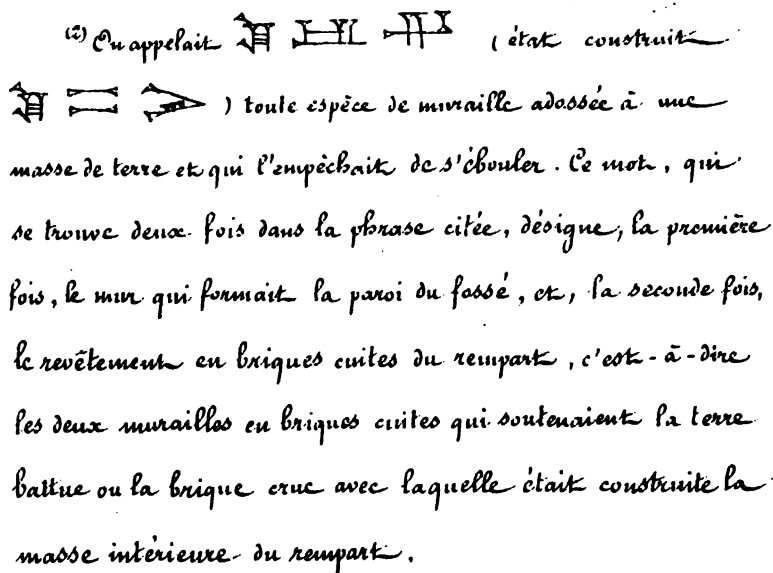 (2) On appelait (état construit
) toute espèce de muraille adossée à une
masse de terre et qui l'empêchait de s'ébouler. Ce mot, qui
se trouve deux fois dans la phrase citée, désigne, la première
fois, le mur qui formait la paroi du fossé, et, la seconde fois,
le revêtement en briques cuites du rempart, c'est-à-dire
les deux murailles en briques cuites qui soutenaient la terre
battue ou la brique crue avec laquelle était construite la
masse intérieure du rempart.